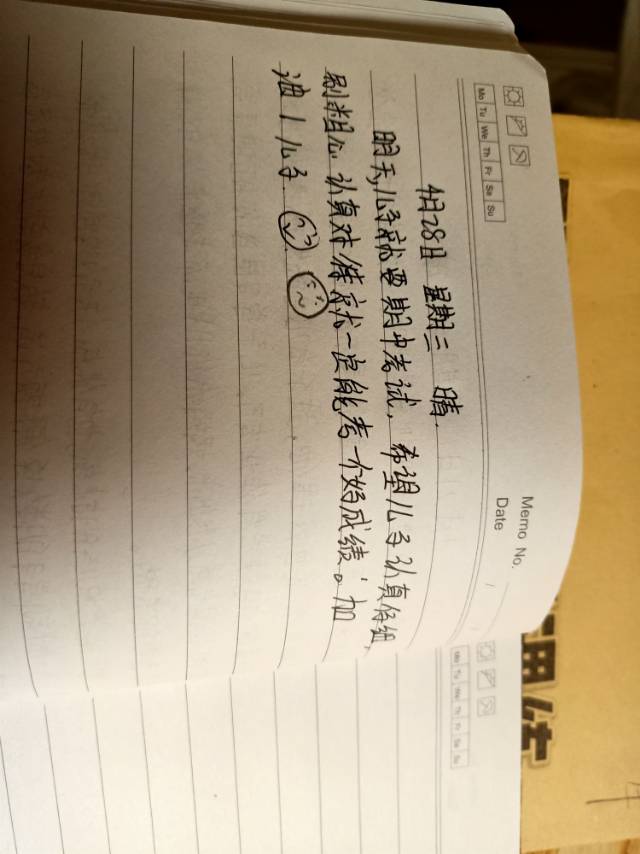 Memo No.
Date / /
Mo Tu We Th Fr Sa Su
4月28日 星期三 晴.
明天,儿子就要期中考试,希望儿子认真仔细,
别粗心,认真对待就一定能考一个好成绩。加
油!儿子
Mo Tu We Th Fr Sa Su